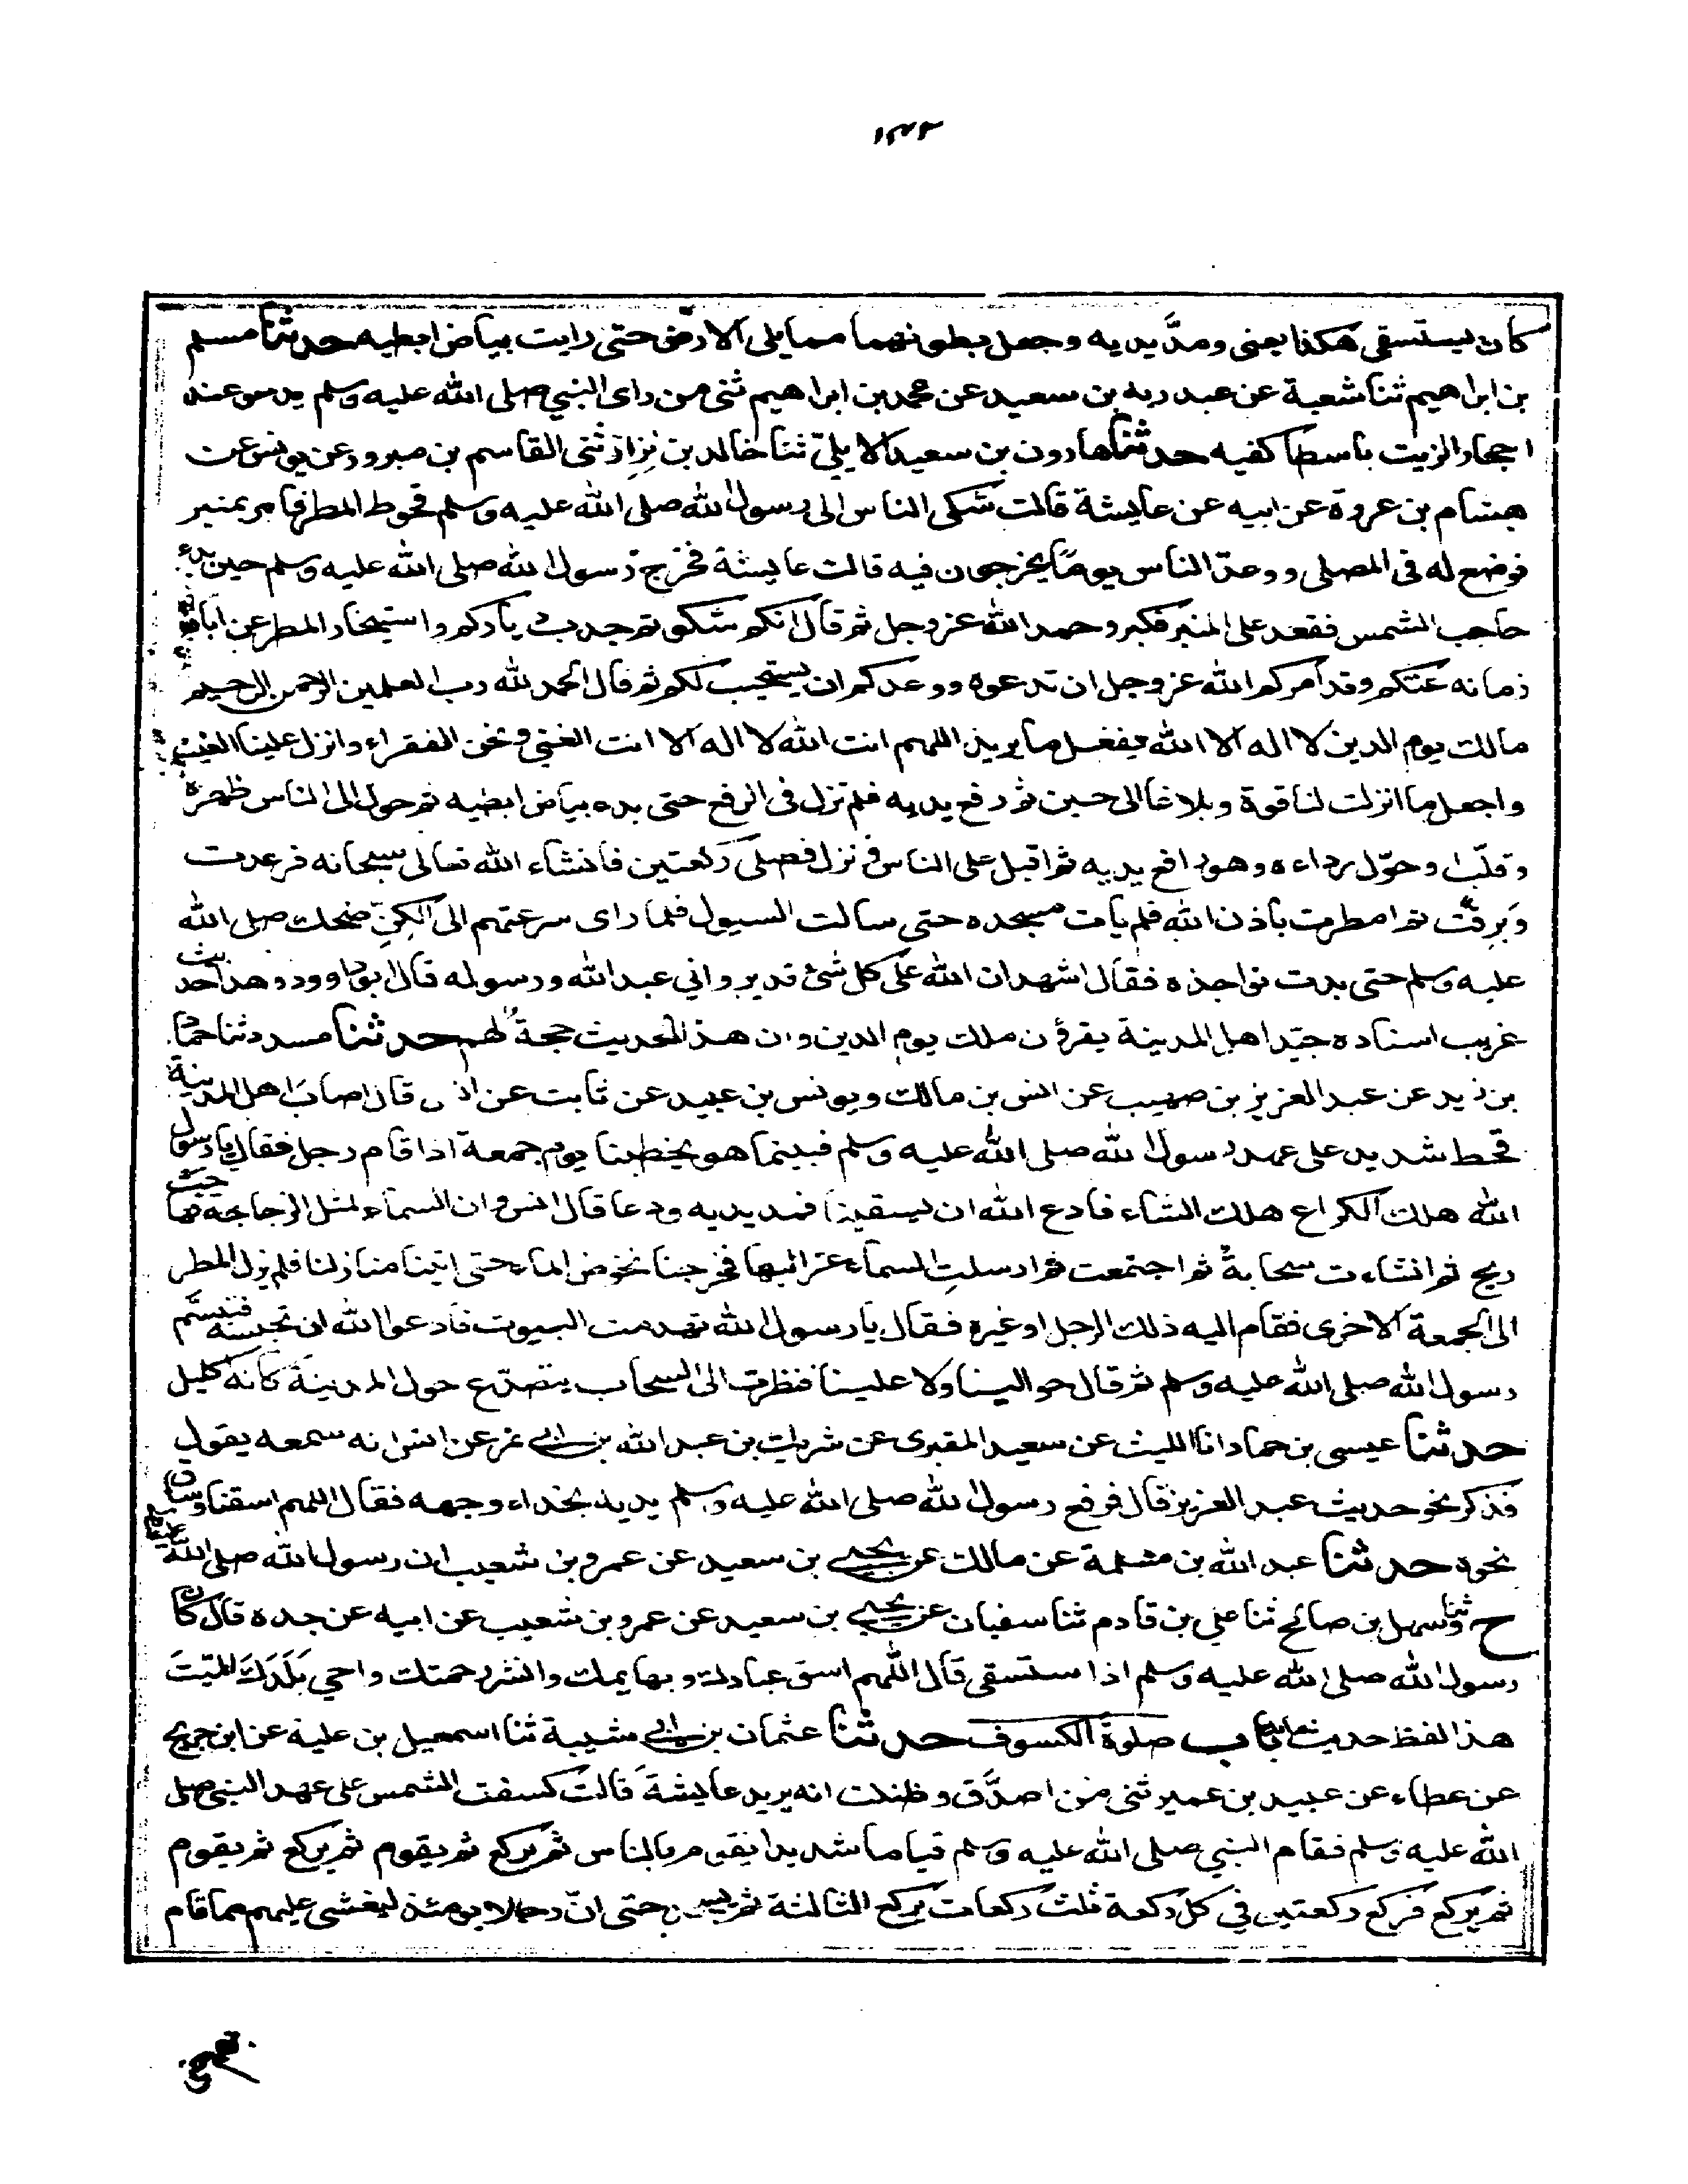 كان يستسقى هكذا يعنى ومدَّ يديه وجعل بطونهما مما يلى الارض حتى رايت بياض ابطيه حدثنا مسلم
بن ابراهيم ثنا شعبة عن عبد ربه بن سعيد عن محمد بن ابراهيم ثنى من راى النبي صلى الله عليه وسلم يدعو عند
احجار الزيت باسطا كفيه حدثنا هارون بن سعيد الايلىّ ثنا خالد بن نزار ثنى القاسم بن مبرور عن يونس عن
هشام بن عروة عن ابيه عن عايشة قالت شكى الناس الى رسول الله صلى الله عليه وسلم قحوط المطر فامر بمنبر
فوضع له فى المصلى ووعد الناس يوما يخرجون فيه قالت عايشة فخرج رسول الله صلى الله عليه وسلم حين بدء
حاجب الشمس فقعد على المنبر فكبر وحمد الله عز وجل ثم قال انكم شكوتم جدب دياركم واستيخار المطر عن ابان
زمانه عنكم وقد امركم الله عز وجل ان تدعوه ووعدكم ان يستجيب لكم ثم قال الحمد لله رب العلمين الرحمن الرحيم
مالك يوم الدين لا اله الا الله يفعل ما يريد اللهم انت الله لا اله الا انت الغني ونحن الفقراء وانزل علينا الغيث
واجعل ما انزلت لنا قوة وبلاغا الى حين ثم رفع يديه فلم تزل فى الرفع حتى بده بياض ابطيه ثم حول الى الناس ظهره
وقلّب وحوّل رداءه وهو رافع يديه ثم اقبل على الناس ونزل فصلى ركعتين فانشاء الله تعالى سبحانه فرعدت
وبرقت ثم امطرت باذن الله فلم يات مسجده حتى سالت السيول فلما راى سرعتهم الى الكنّ ضحك صلى الله
عليه وسلم حتى بدت نواجذه فقال اشهد ان الله على كل شئ قدير واني عبد الله ورسوله قال ابو داوود وهذا حديث
غريب اسناده جيّد اهل المدينة يقرؤن ملك يوم الدين وان هذا الحديث حجة لهم حدثنا مسدد ثنا حماد
بن زيد عن عبد العزيز بن صهيب عن انس بن مالك ويونس بن عبيد عن ثابت عن انس قال اصاب اهل المدينة
قحط شديد على عهد رسول الله صلى الله عليه وسلم فبينما هو يخطبنا يوم جمعة اذا قام رجل فقال يا رسول
الله هلك الكراع هلك الشاء فادع الله ان يسقينا فمد يديه ودعا قال انس وان السماء لمثل الزجاجة فهاجت
ريح ثم انشاءت سحابة ثم اجتمعت ثم ارسلت السماء عزاليها فخرجنا نخوض الماء حتى اتينا منازلنا فلم يزل المطر
الى الجمعة الاخرى فقام اليه ذلك الرجل او غيره فقال يا رسول الله تهدمت البيوت فادعوا الله ان تحبسه فتبسّم
رسول الله صلى الله عليه وسلم ثم قال حوالينا ولا علينا فنظرت الى السحاب يتصدّع حول المدينة كانه اكليل
حدثنا عيسى بن حماد انا الليث عن سعيد المقبرى عن شريك بن عبد الله بن ابى نمر عن انس انه سمعه يقول
فذكر نحو حديث عبد العزيز قال فرفع رسول الله صلى الله عليه وسلم يديه بحذاء وجهه فقال اللهم اسقنا وساق
نحوه حدثنا عبد الله بن مسلمة عن مالك عن يحيى بن سعيد عن عمرو بن شعيب ان رسول الله صلى الله عليه وسلم
ح وثنا سهل بن صالح ثنا على بن قادم ثنا سفيان عن يحيى بن سعيد عن عمرو بن شعيب عن ابيه عن جده قال كان
رسول الله صلى الله عليه وسلم اذا استسقى قال اللهم اسق عبادك وبهايمك وانشر رحمتك واحي بلدك الميّت
هذا لفظ حديث باب صلوة الكسوف حدثنا عثمان بن ابى شيبة ثنا اسمعيل بن علية عن ابن جريج
عن عطاء عن عبيد بن عمير ثنى من اصدّق وظننت انه يريد عايشة قالت كسفت الشمس على عهد النبي صلى
الله عليه وسلم فقام النبي صلى الله عليه وسلم قياما شديدا يقوم بالناس ثم يركع ثم يقوم ثم يركع ثم يقوم
ثم يركع فركع ركعتين في كل ركعة ثلث ركعات يركع الثالثة ثم يسجد حتى انّ رجالا يومئذ ليغشى عليهم مما قام